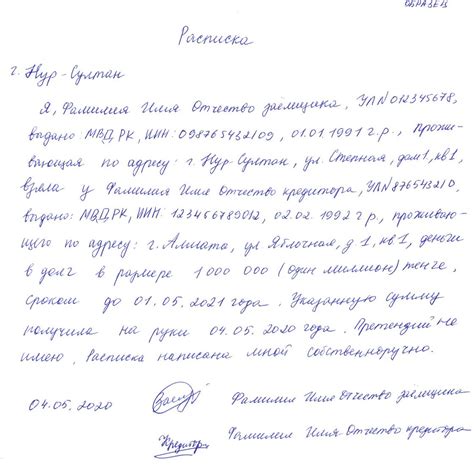 ОБРАЗЕЦ
Расписка
г. Нур-Султан
Я, Фамилия Имя Отчество заёмщика, УЛN012345678,
выдано: МВД РК, ИИН: 098765432109, 01.01.1991 г.р., прожи-
вающая по адресу: г. Нур-Султан, ул. Степная, дом 1, кв 1,
взяла у Фамилия Имя Отчество кредитора, УЛN876543210,
выдано: МВД РК, ИИН: 123456789012, 02.02.1992 г р., проживаю-
щего по адресу: г. Алмата, ул Яблочная, д 1, кв 1, деньги
в долг в размере 1 000 000 (один миллион) тенге,
сроком до 01.05.2021 года. Указанную сумму
получила на руки 04.05.2020 года. Претензий не
имею. Расписка написана мной собственноручно.
04.05.2020 Заемщ Фамилия Имя Отчество заёмщика
Кредитор Фамилия Имя Отчество кредитора